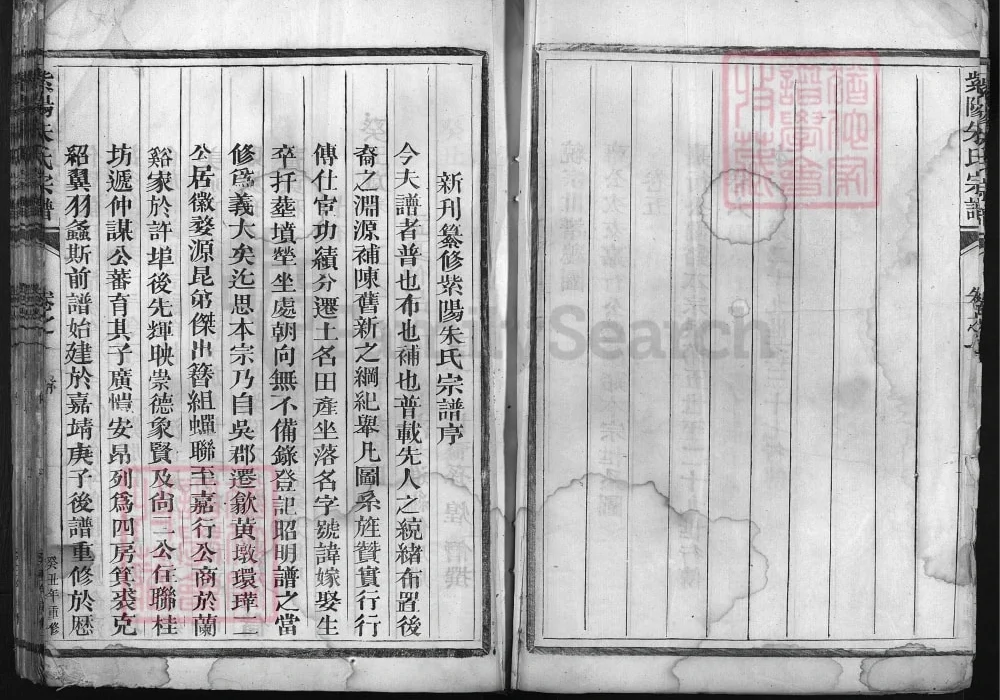 紫陽朱氏宗譜
新刊纂修紫陽朱氏宗譜序
今夫譜者普也布也補也普載先人之統緒布置後
裔之淵源補陳舊新之綱紀舉凡圖系旌贊實行行
傳仕宦功績分遷土名田產坐落名字號諱嫁娶生
卒扦塟墳塋坐處朝向無不備錄登記昭明譜之當
修爲義大矣迄思本宗乃自吳郡遷歙黃墩環璍二
公居徽婺源昆弟傑出簪組蟬聯至嘉行公商於蘭
谿家於許埠後先輝映崇德象賢及尙二公在聯桂
坊遞仲謀公蕃育其子廣愷安昂列爲四房箕裘克
紹翼羽螽斯前譜始建於嘉靖庚子後譜重修於歷
紫陽朱氏宗譜
序
癸丑年重修
FamilySearch